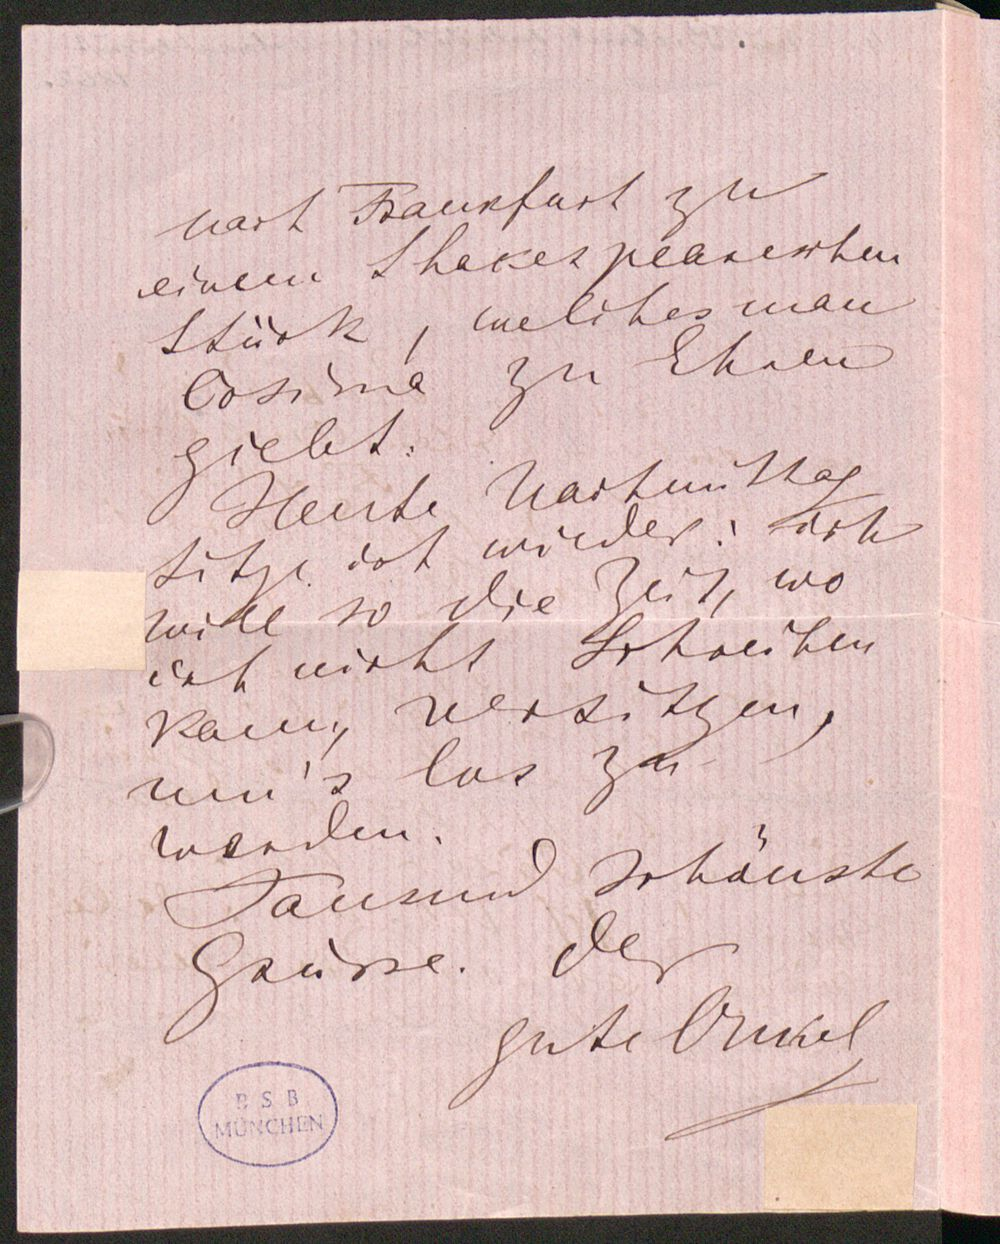 nach Frankfurt zu
einem Shakespeareschen
Stück, welches man
Cosima zu Ehren
giebt.
Heute Nachmittag
sitze ich wieder: ich
will so die Zeit, wo
ich nicht schreiben
kann, versitzen,
um's los zu
werden.
Tausend schönste
Grüsse. Der
gute Onkel
B S B
MÜNCHEN